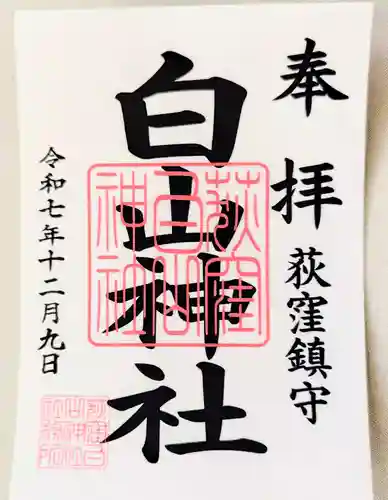 奉拝
荻窪鎮守
白山神社
令和七年十二月九日
荻窪
白山
神社